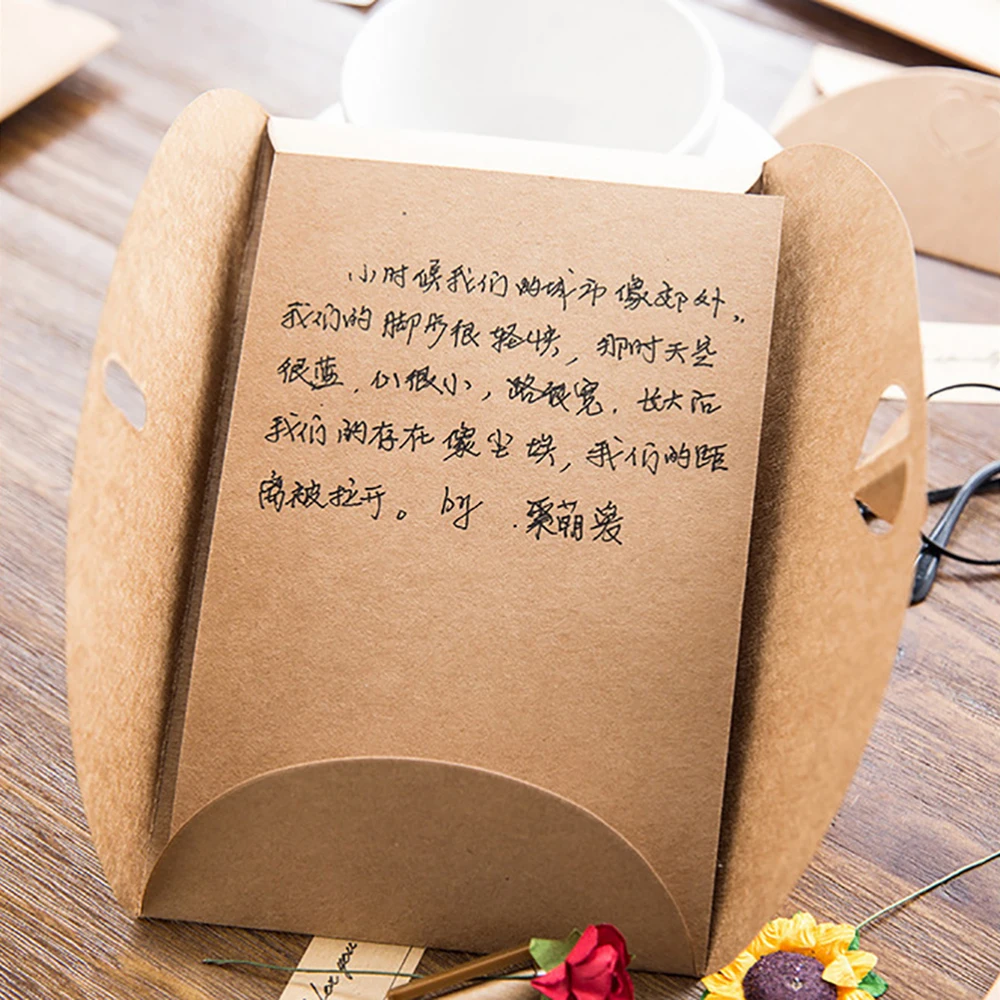 小时候我们的城市像郊外。
我们的脚步很轻快，那时天是
很蓝，心很小，路很宽。长大后
我们的存在像尘埃，我们的距
离被拉开。by
for you